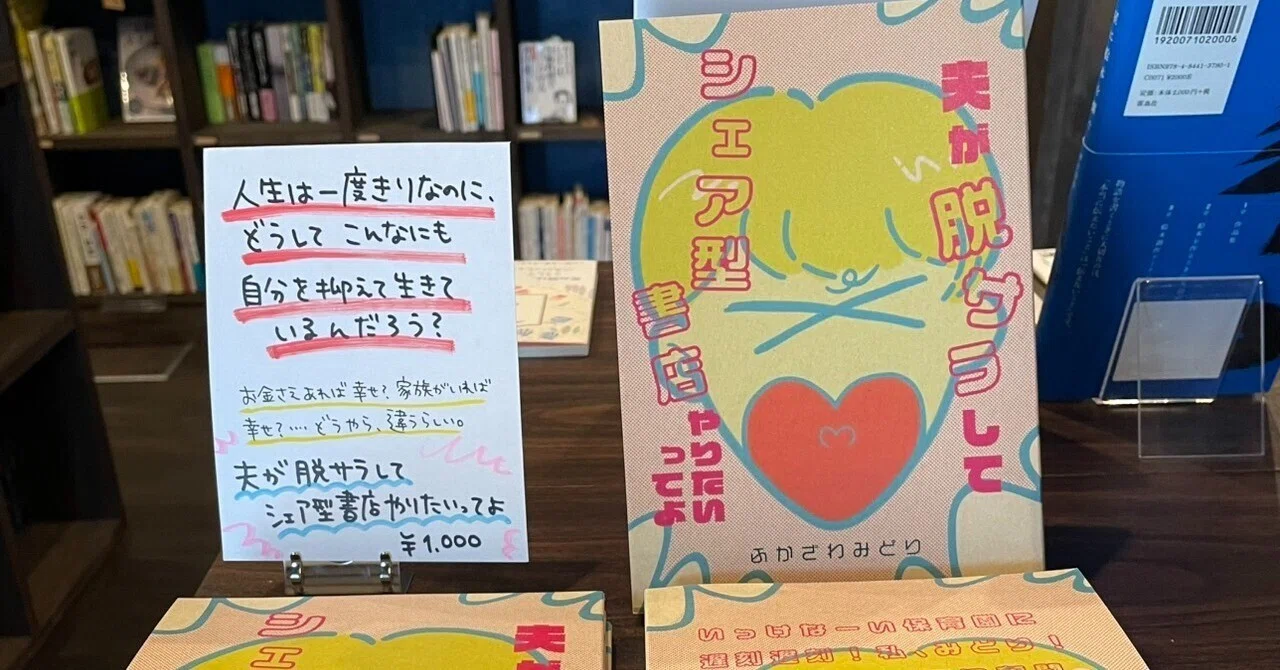 人生は一度きりなのに、
どうして こんなにも
自分を抑えて生きて
いるんだろう?
お金さえあれば幸せ?家族がいれば
幸せ?‥‥どうやら、違うらしい。
夫が脱サラして
シェア型書店やりたいってよ
¥1,000
夫が脱サラして
シェア型
書店
やりたい
ってよ
ふかざわみどり
1920071020006
定価:本体2,000円+税
雷鳥社
夫が
シェ
いっけなーい保育園に
遅刻遅刻!私、みどり!